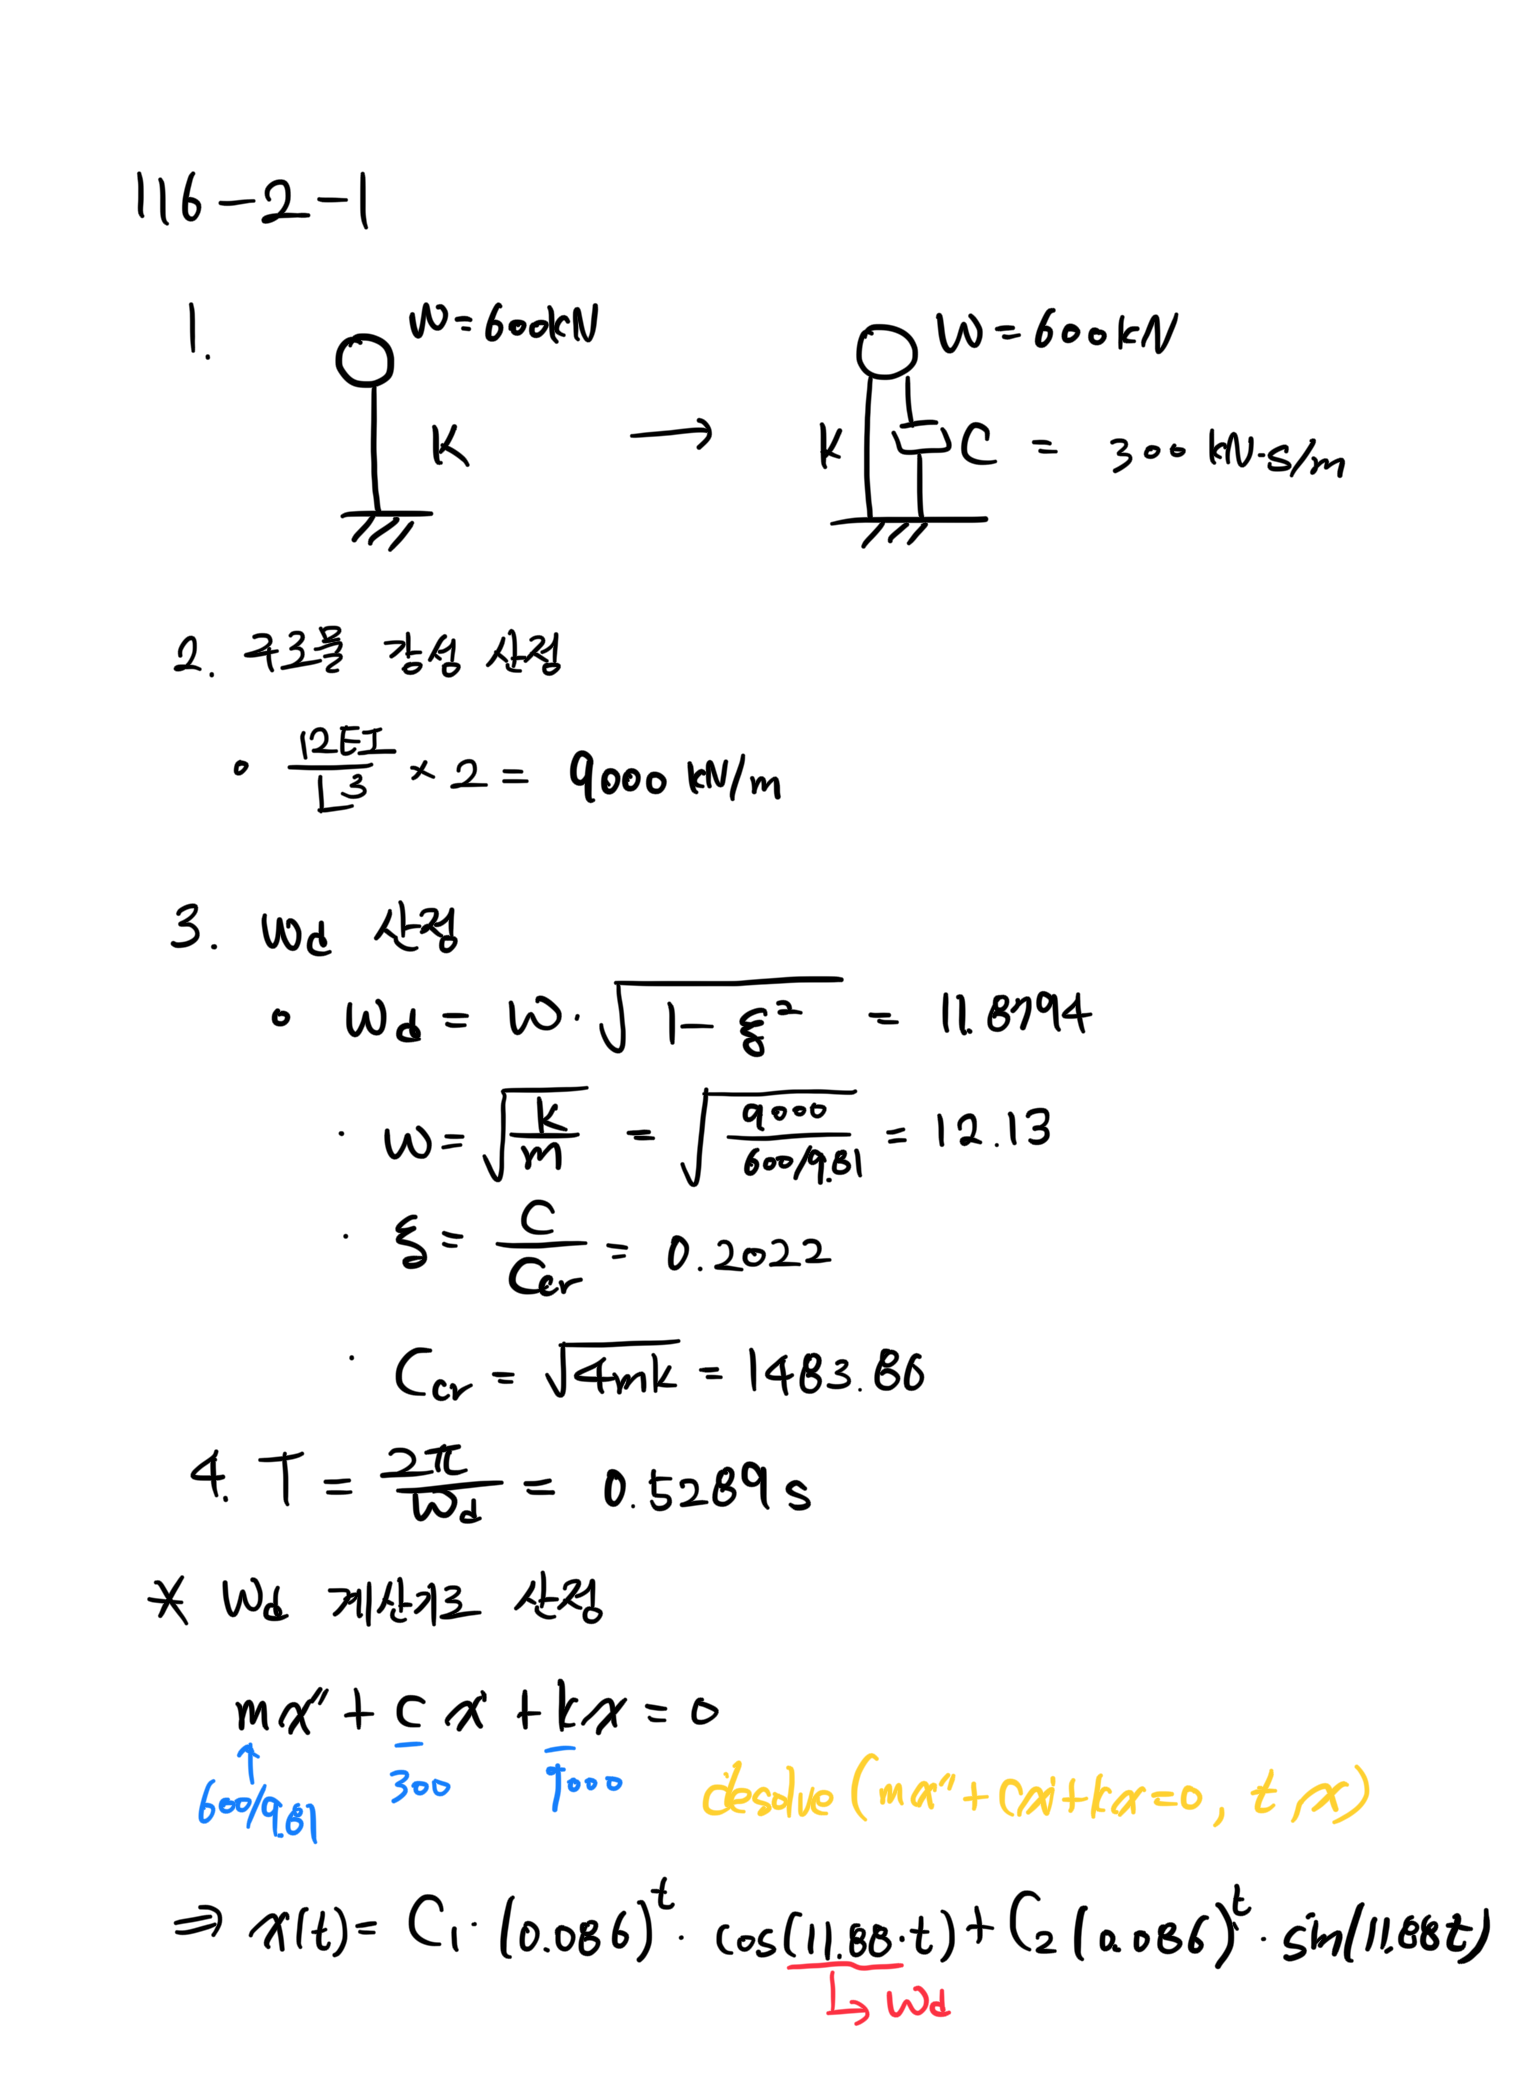 116-2-1
1. W=600kN → W=600kN
K K C = 300 kN·s/m
2. 구조물 강성 산정
• 12EI/L³ × 2 = 9000 kN/m
3. Wd 산정
• Wd = W·√(1-ξ²) = 11.8794
· W = √(k/m) = √(9000/(600/9.81)) = 12.13
· ξ = C/Ccr = 0.2022
· Ccr = √4mk = 1483.86
4. T = 2π/Wd = 0.5289 s
* Wd 계산기로 산정
mx″ + cx′ + kx = 0
600/9.81 300 9000 desolve(mx″+cx′+kx=0, t,x)
⇒ x(t) = C₁·(0.086)ᵗ·cos(11.88·t)+C₂(0.086)ᵗ·sin(11.88t)
↳ Wd